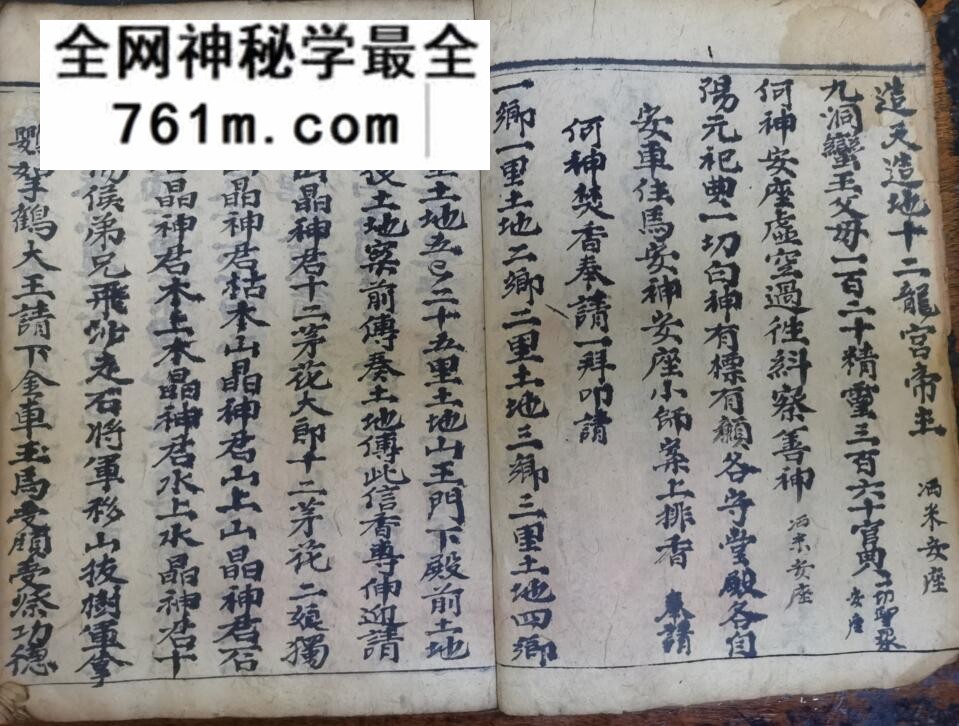 全网神秘学最全
761m.com
造天造地十二龍宫帝主 洒米安座
九洞蠻王父母一百二十精靈三百六十官典 一切聖眾 安座
何神安座虛空過往糾察善神 洒米安座
陽元祀典一切白神有標有願各守堂殿各自
安車住馬安神安座小師案上排香 奉請
何神焚香奉請一拜叩請
一鄉一里土地二鄉二里土地三鄉三里土地四鄉
里土地五己二十五里土地山王門下殿前土地
土地案前傳奏土地傳此信香尊伸迎請
晶神君十二茅花大郎十二茅花二娘獨
晶神君枯木山晶神君山上山晶神君石
晶神君木上木晶神君水上水晶神君十
侯弟兄飛沙走石將軍移山拔樹軍拿
拿鶴大王請下金車玉馬受領受祭功德